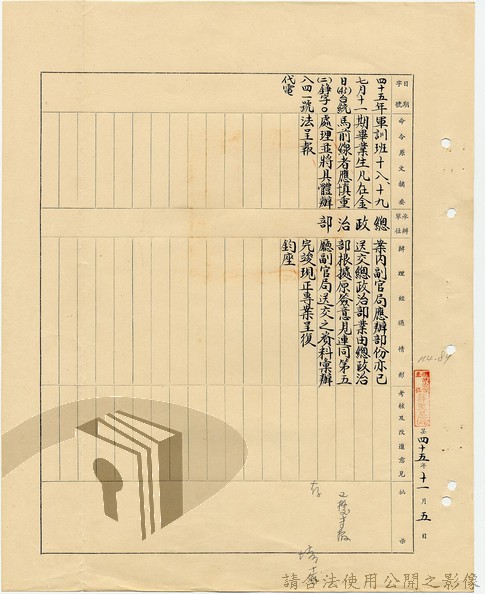 字號
日期
命令原文摘要
承辦單位
辦理經過情形
考核及改進意見
批示
四十五年軍訓班十八、十九
七月十一期畢業生凡在金
日(45)台統馬前線者應慎重
(二)錚字0處理並將具體辦
八四一號法呈報
代電
總政治部
業內副官局應辦部份亦已
送交總政治部業由總政治
部根據原簽意見連同第五
廳副官局送交之資料彙辦
完竣現正專業呈復
鈞座
四十五年十一月五日
請合法使用公開之影像